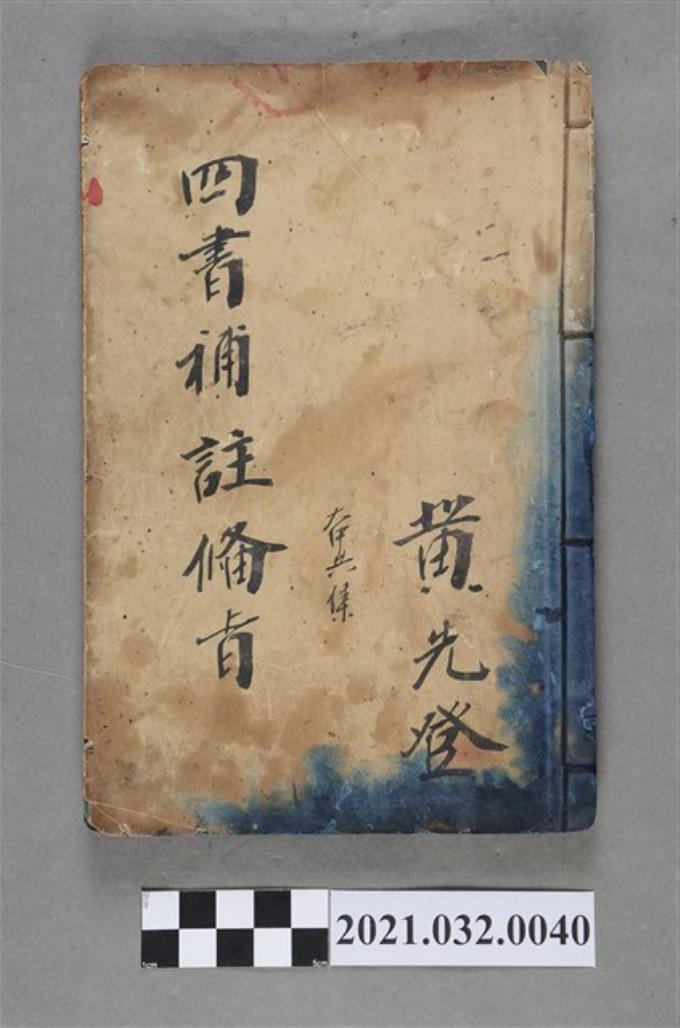 黃先登
四書補註備旨
2021.032.0040
5cm
5cm